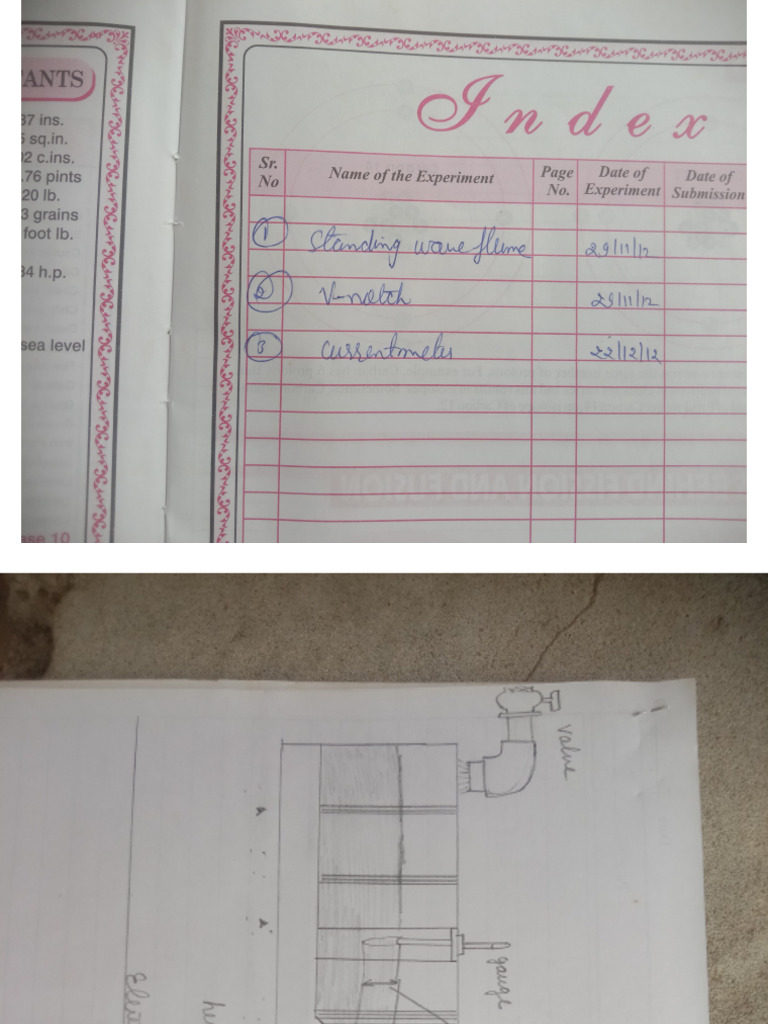 ANTS
37 ins.
sq.in.
02 c.ins.
.76 pints
20 lb.
3 grains
foot lb.
34 h.p.
sea level
Index
Sr. No Name of the Experiment Page No. Date of Experiment Date of Submission
1 Standing wave flume 29/11/12
2 V-notch 29/11/12
3 Currentmeter 22/12/12
Valve
gauge